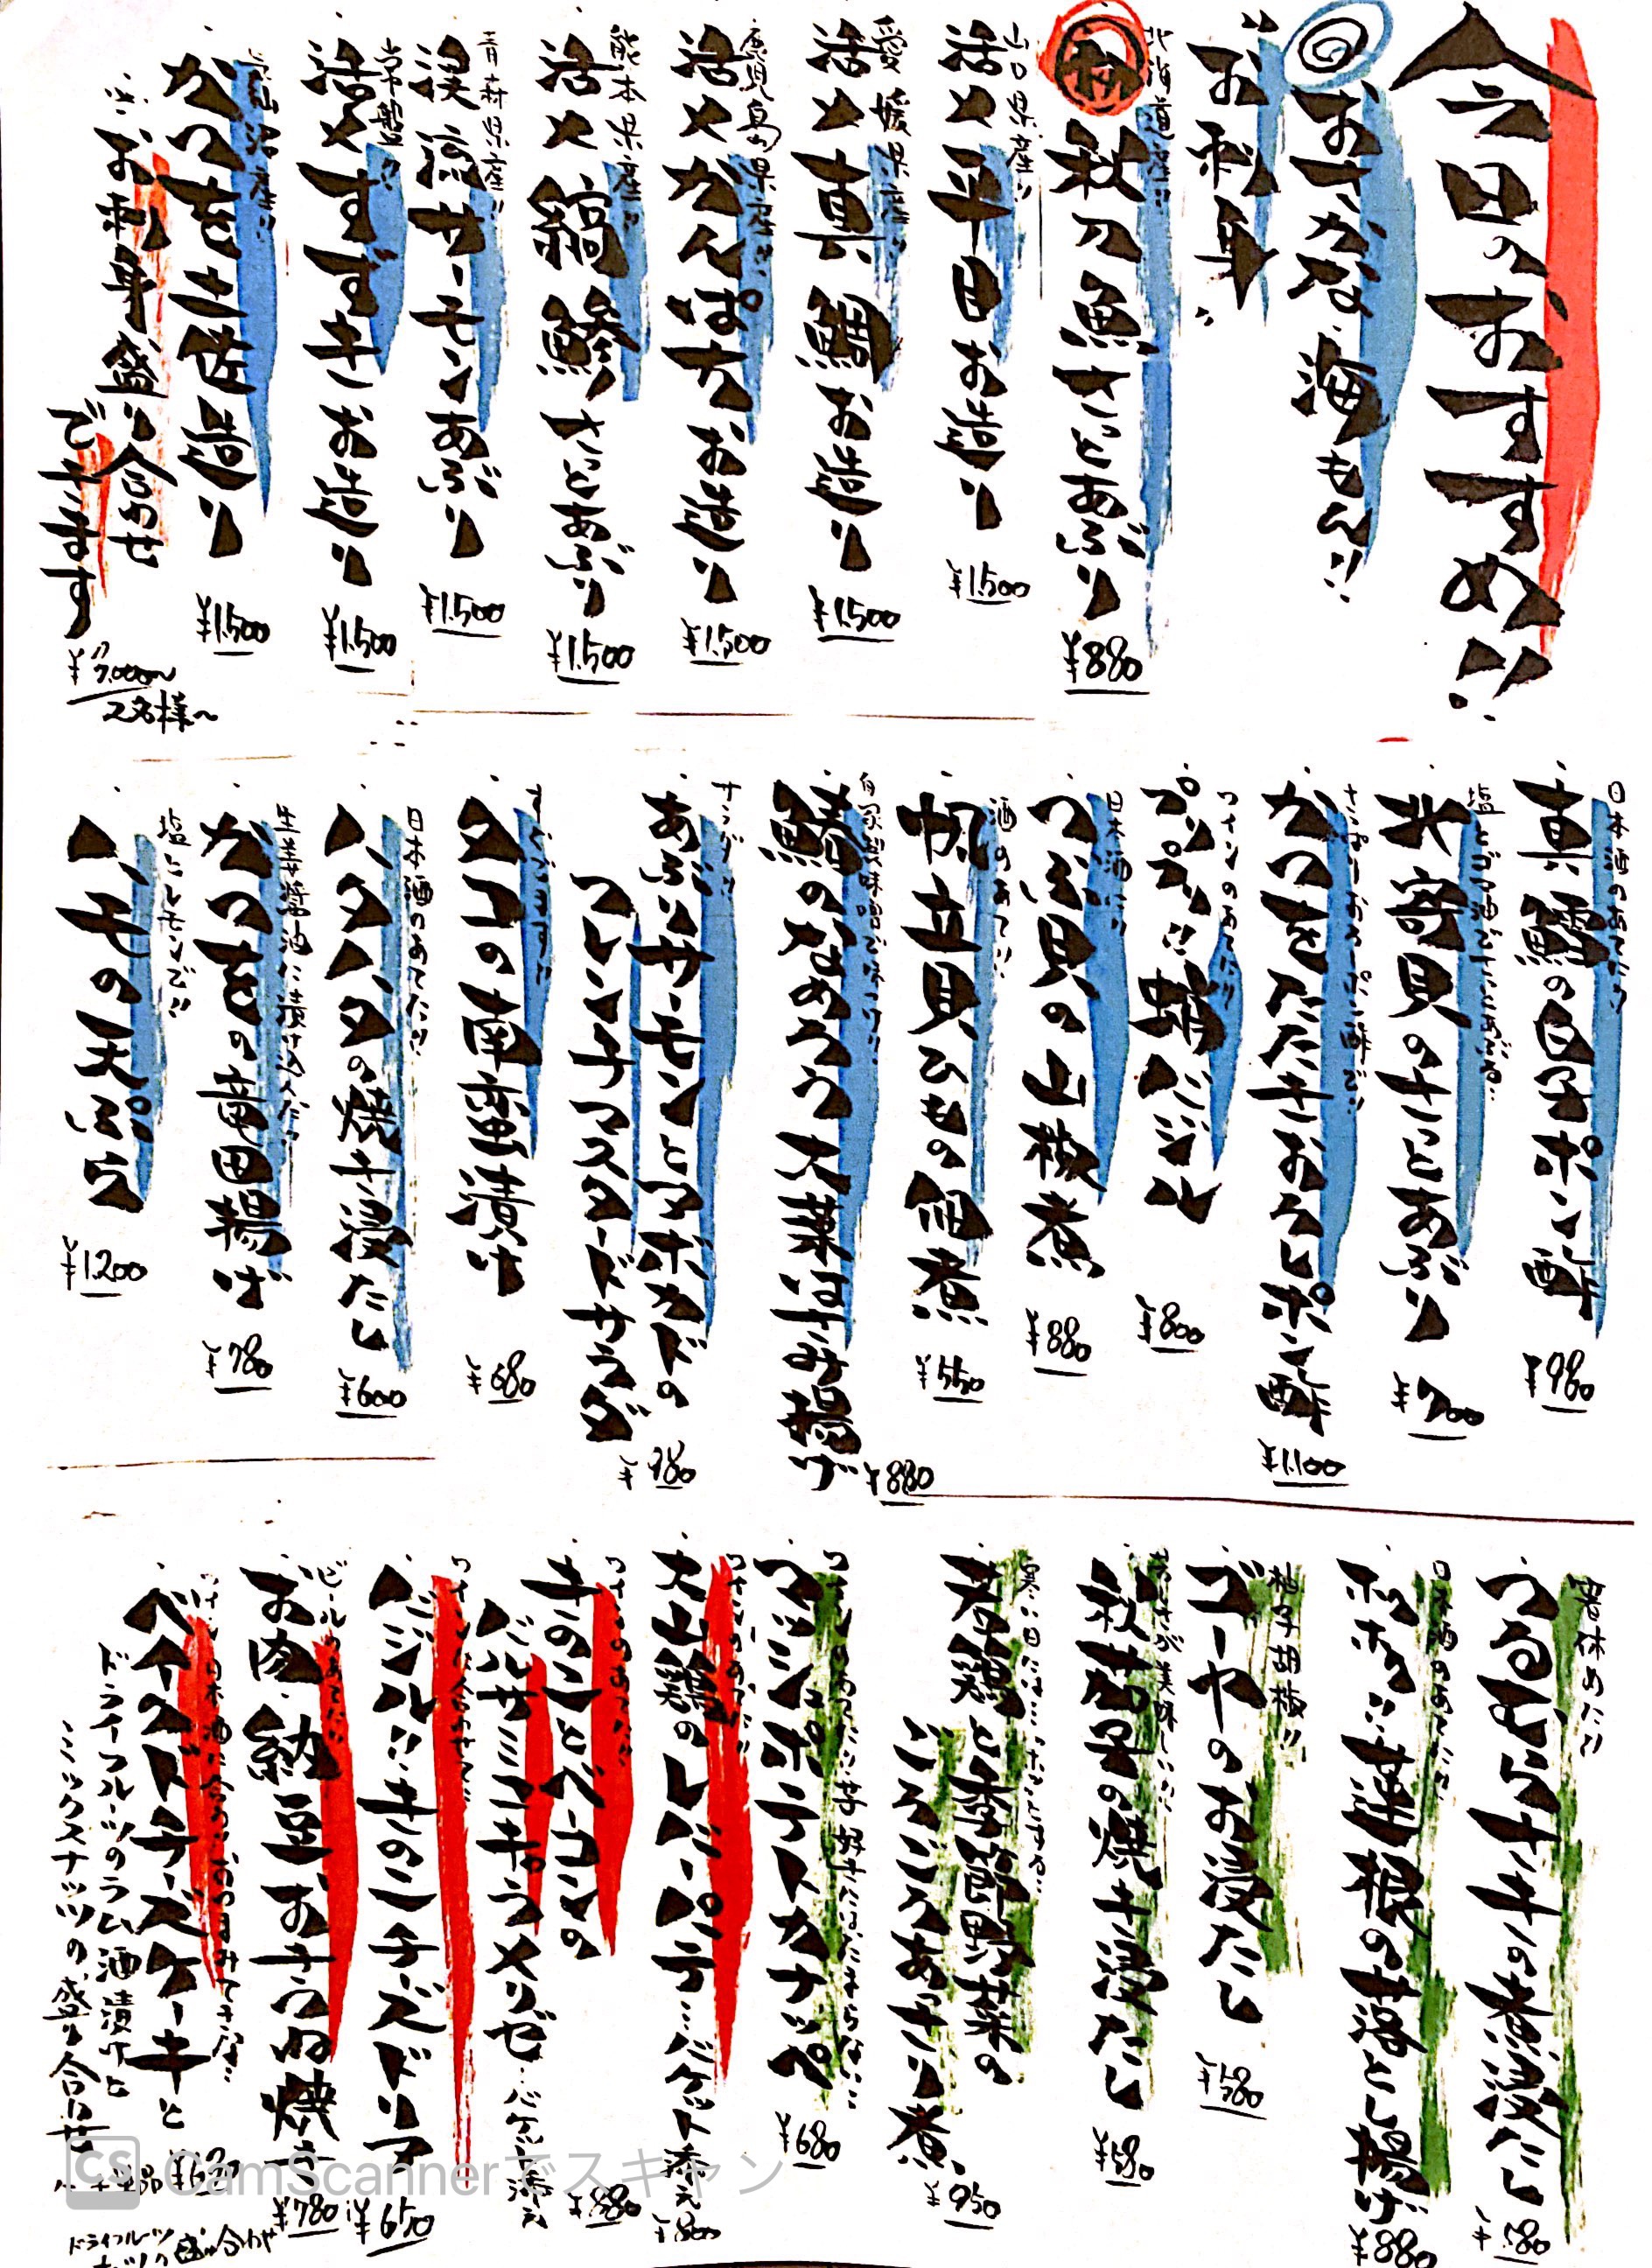 今日のおすすめ!!
おさかな海もん!!
お刺身
北海道産!!
秋刀魚さっとあぶり
¥880
山口県産!!
活〆平目お造り
¥1.500
愛媛県産!!
活〆真鯛お造り
¥1.500
鹿児島県産!!
活〆かんぱちお造り
¥1.500
熊本県産!!
活〆縞鯵さっとあぶり
¥1.500
青森県産!!
サーモンあぶり
¥1.500
常磐!!
活〆すずきお造り
¥1.500
かつをお造り
¥1.500
お刺身盛り合わせ
できます
2名様〜
日本酒のあてに!!
真鱈の白子ポン酢
¥980
塩とごま油でさっとあぶる
北寄貝のさっとあぶり
¥700
かつをたたきおろしポン酢
¥1.100
ワインのあてに!!
プリプリ!!蛸バジル
¥800
日本酒に!!
つぶ貝の山椒煮
¥880
酒のあてに!!
帆立貝ひもの佃煮
¥550
自家製味噌で味つけ!!
鯵のなめろう大葉はさみ揚げ
¥880
サラダ!!
あぶりサーモンとアボカドの
フレンチマスタードサラダ
¥980
タコの南蛮漬け
¥680
日本酒のあてに!!
ハタハタの焼き浸たし
¥600
生姜醤油に漬け込んだ!!
かつをの竜田揚げ
¥780
塩とレモンで!!
ハモの天ぷら
¥1.200
箸休めに!!
つるむらさきの煮浸たし
¥580
日本酒のあてに!!
ホクホク!!蓮根の落とし揚げ
¥880
柚子胡椒!!
ゴーヤのお浸たし
¥580
秋茄子の焼き浸たし
¥580
若鶏と香味野菜の
ごろごろあっさり煮
¥950
マッシュポテトカナッペ
¥680
ワインのあてに!!
大山鶏のレバーパテ…バケット添え
¥800
ワインのあてに!!
きのことベーコンの
バルサミコキャラメリゼ…バケット添え
¥880
バジル!!きのこチーズドリア
¥650
ビールのあてに!!
お肉納豆おきつね焼き
¥780
ベイクドチーズケーキと
ドライフルーツのラム酒漬けと
ミックスナッツの盛り合わせ
CS CamScannerでスキャン